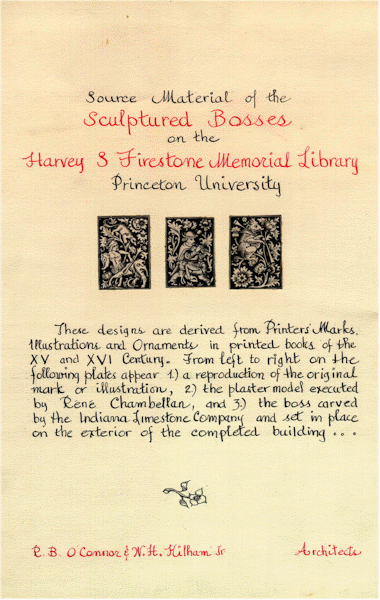 Source Material of the
Sculptured Bosses
on the
Harvey S Firestone Memorial Library
Princeton University
These designs are derived from Printers' Marks,
Illustrations and Ornaments in printed books of the
XV and XVI Century. From left to right on the
following plates appear 1) a reproduction of the original
mark or illustration, 2) the plaster model executed
by René Chambellan, and 3) the boss carved
by the Indiana Limestone Company and set in place
on the exterior of the completed building ...
R. B. O'Connor & W. H. Kilham Jr Architects